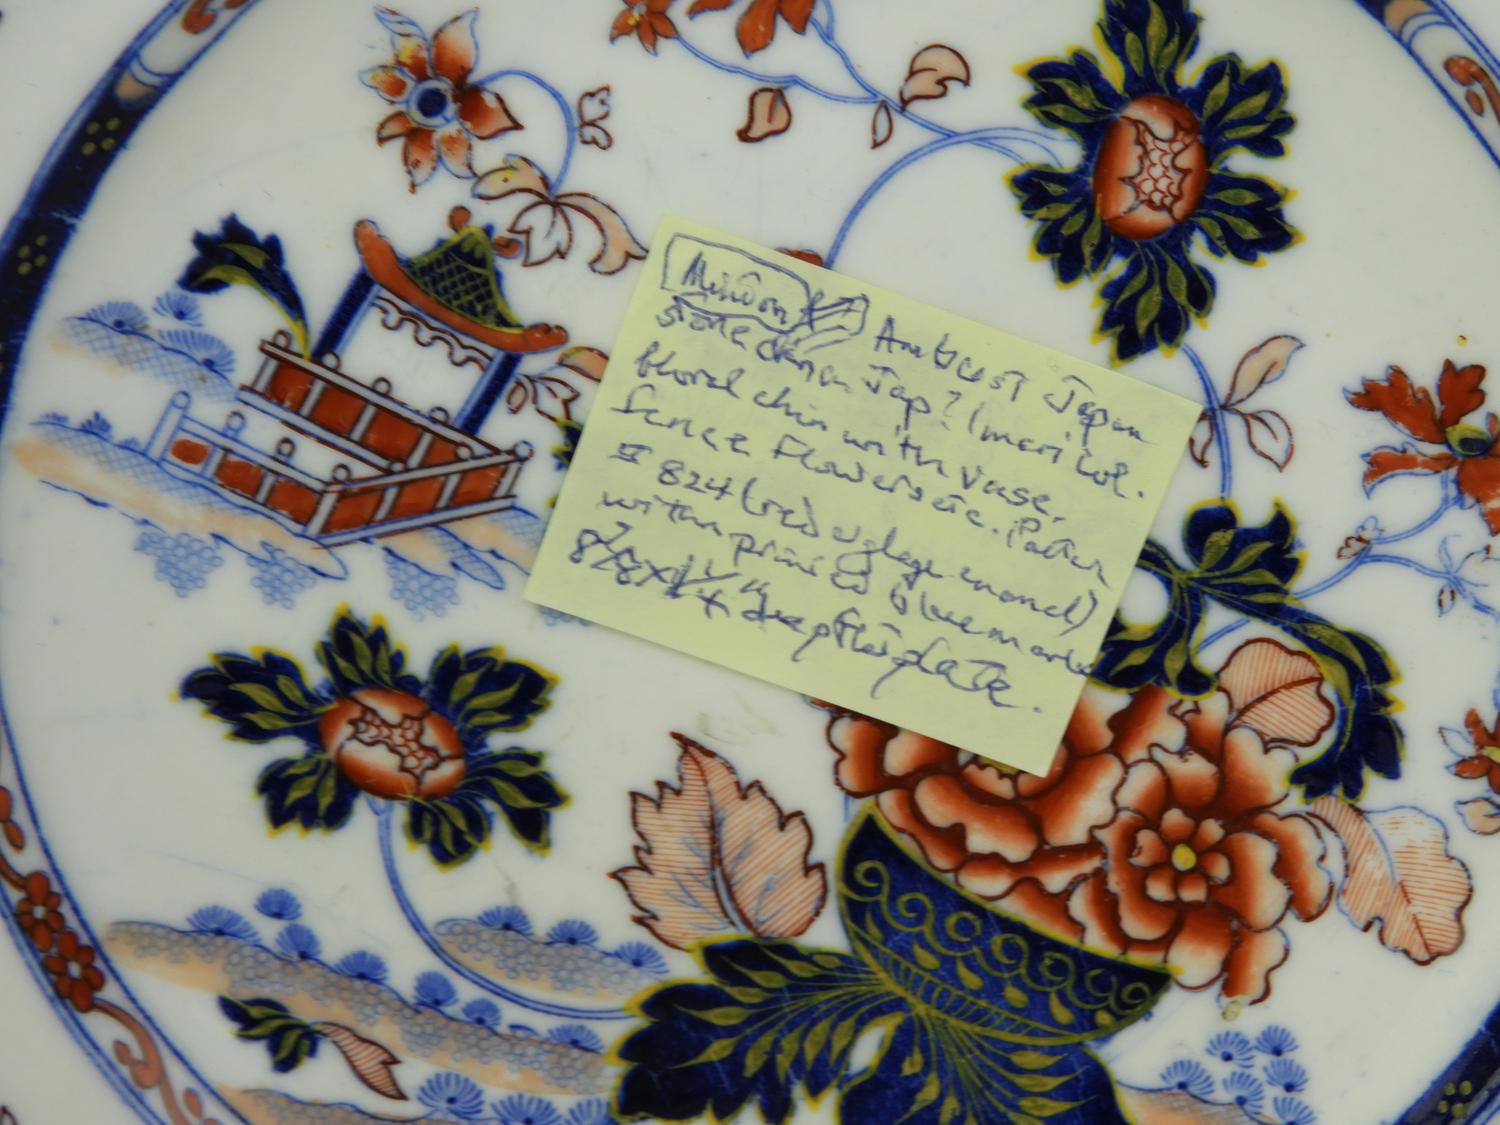 Minton Amherst Japan
Stone china Jap? Imari col.
floral chin with vase,
fence flowers etc. Pattern
824 (red uglaze enamel)
with printed blue mark
deep plate.